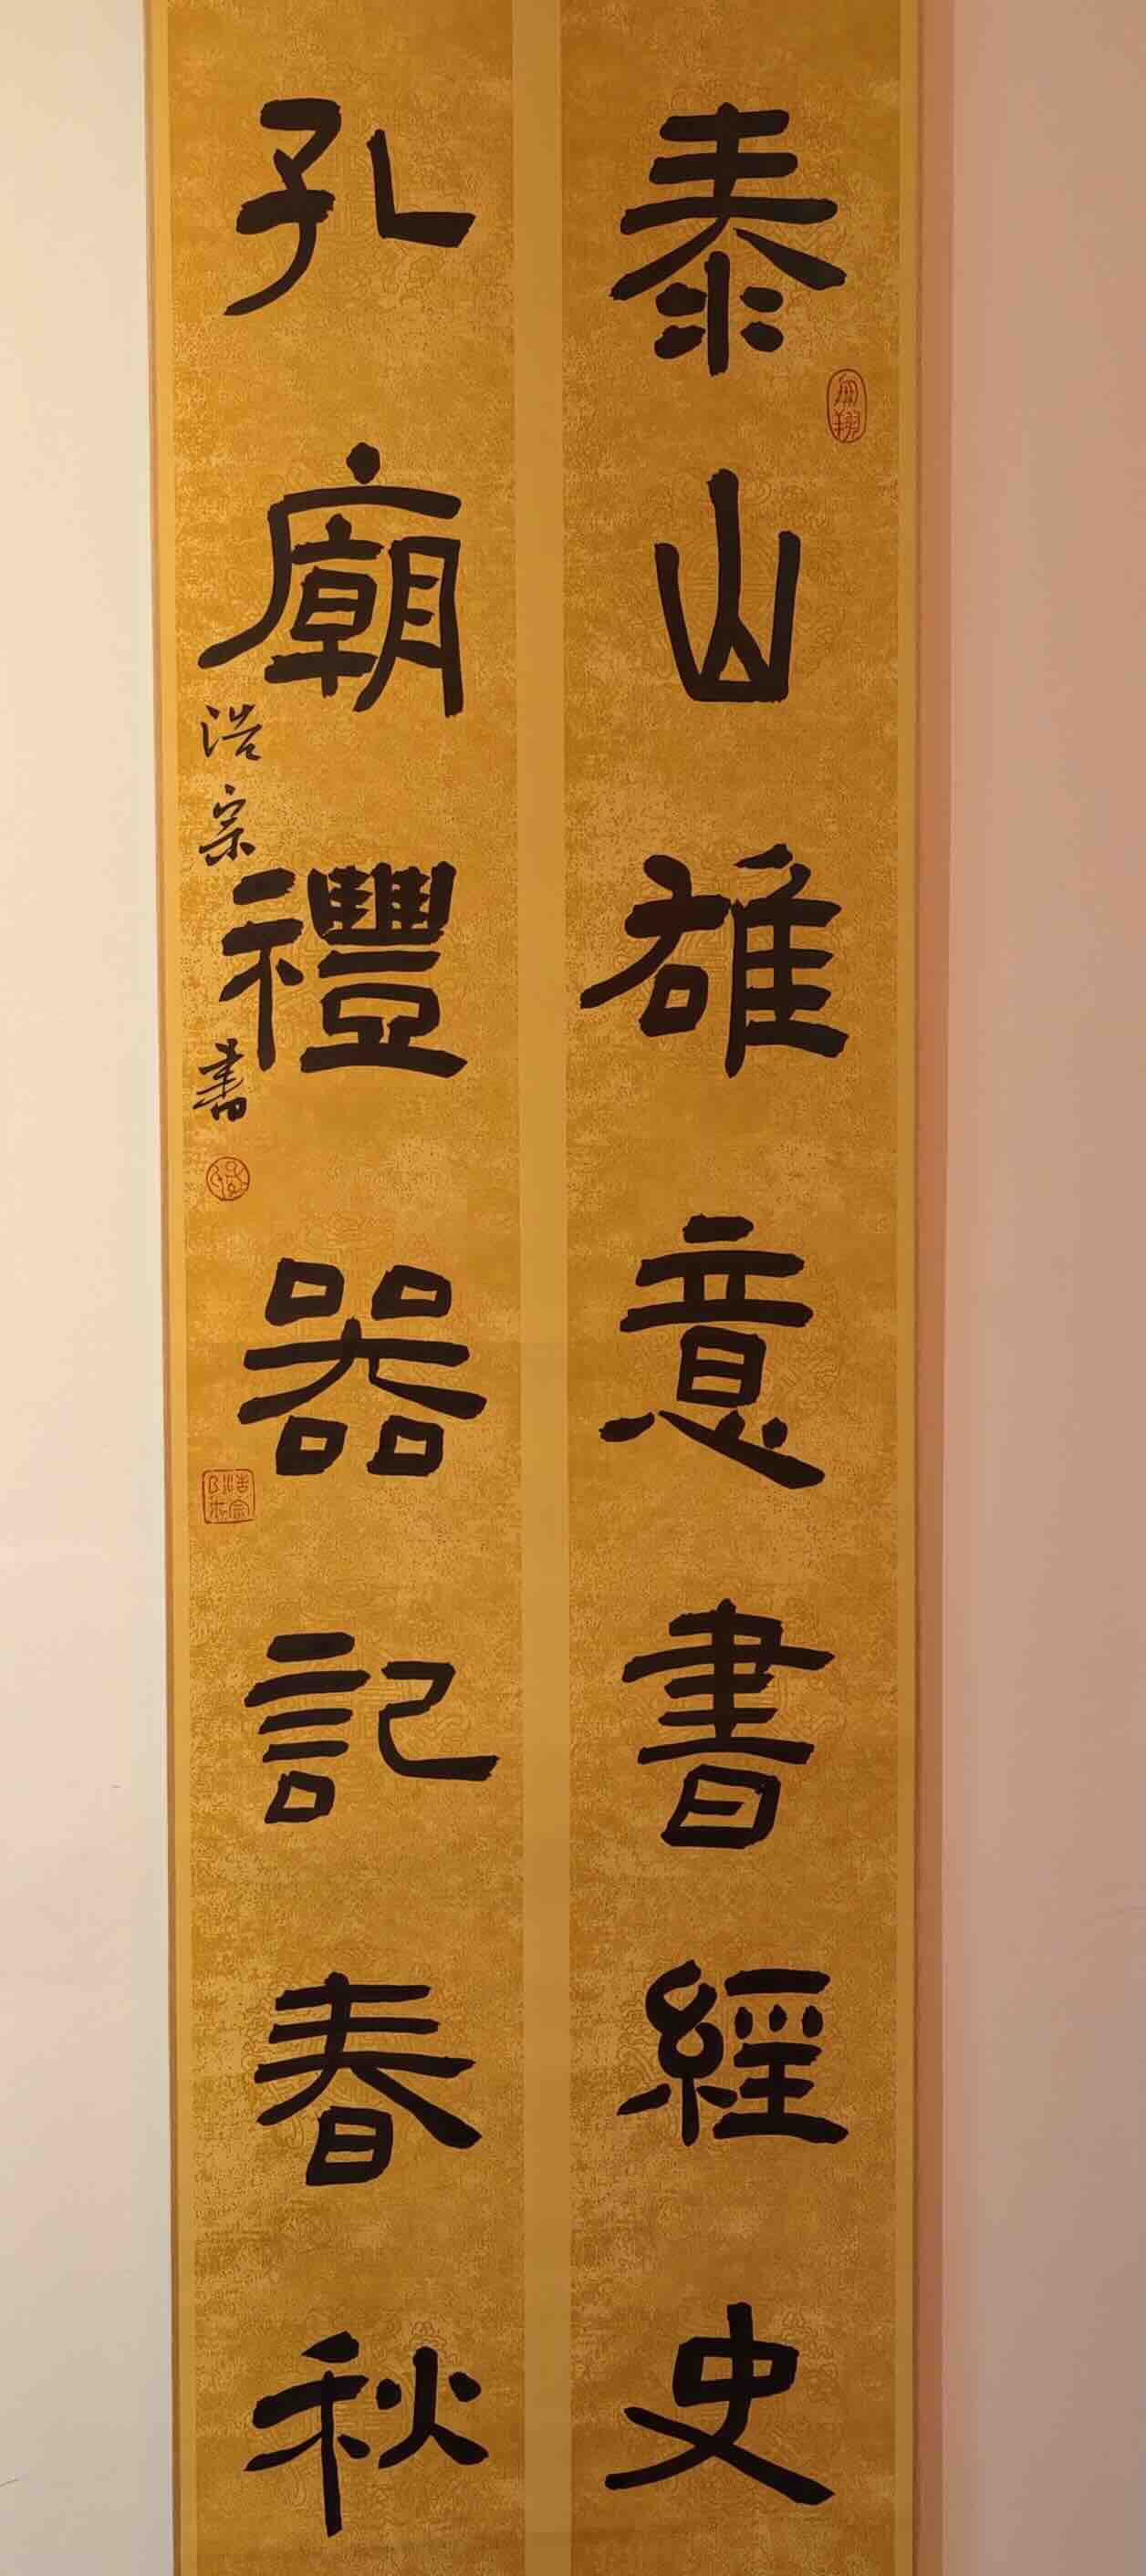 泰山雄意書經史
孔廟禮器記春秋
浩宗書